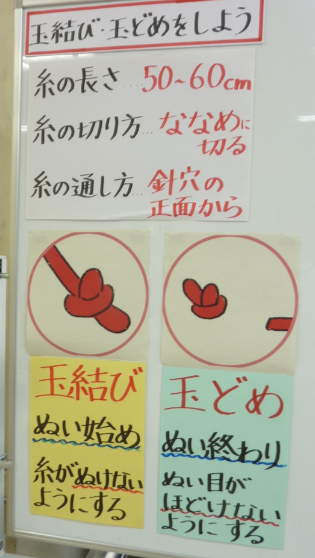 玉結び・玉どめをしよう
糸の長さ…50~60cm
糸の切り方…ななめに
切る
糸の通し方…針穴の
正面から
玉結び
ぬい始め
糸がぬけない
ようにする
玉どめ
ぬい終わり
ぬい目が
ほどけない
ようにする